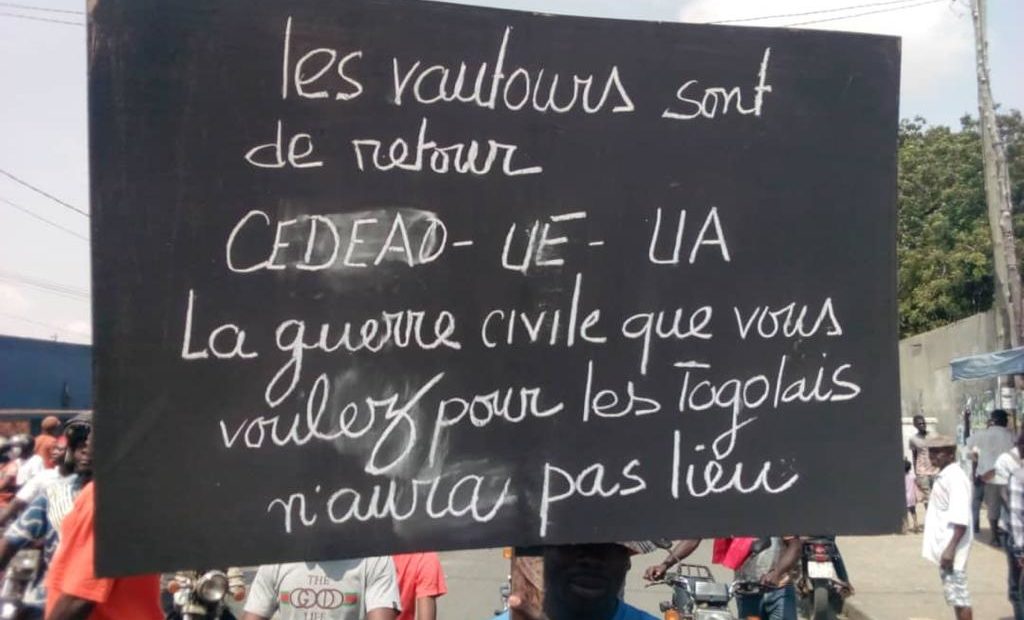 les vautours sont
de retour
CEDEAO - UE - UA
La guerre civile que vous
voulez pour les Togolais
n'aura pas lieu
THE
GOOD
LIFE